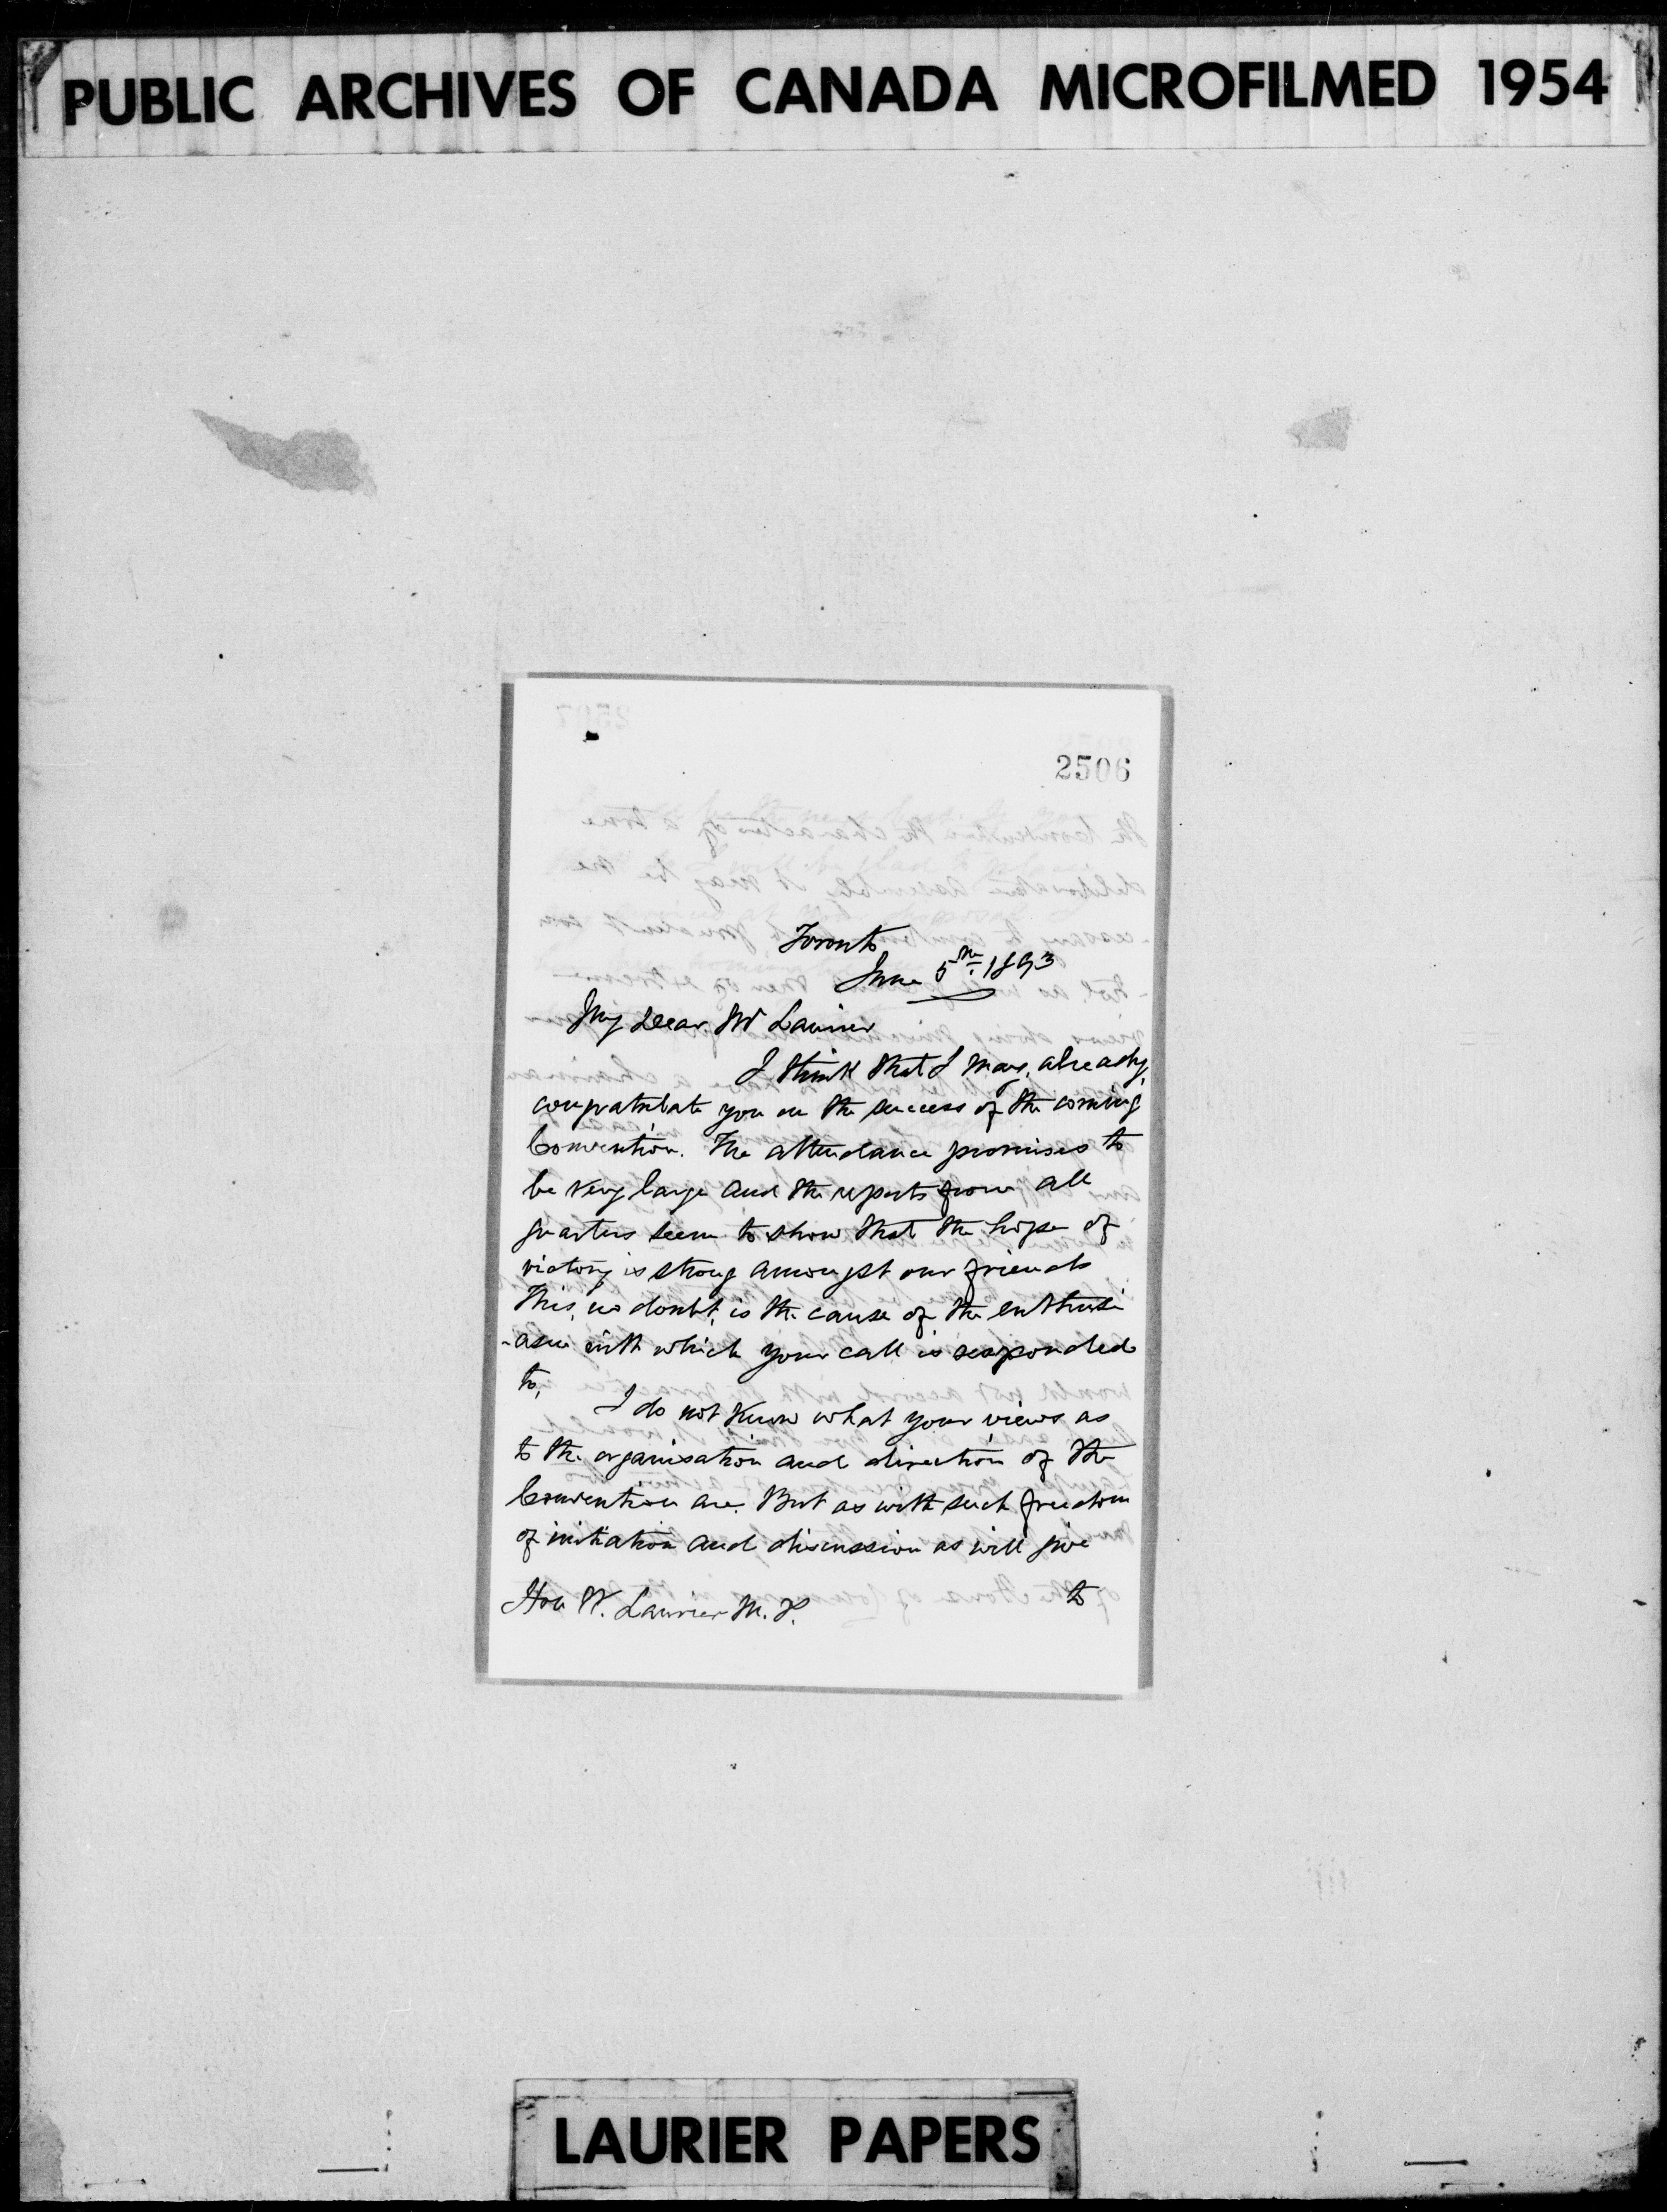 PUBLIC ARCHIVES OF CANADA MICROFILMED 1954
2506
Toronto
June 5th 1893
My Dear Mr Laurier
I think that I may, already,
congratulate you on the success of the coming
Convention. The attendance promises to
be very large and the reports from all
quarters seem to show that the hope of
victory is strong amongst our friends
This, no doubt, is the cause of the enthusi
-asm with which your call is responded
to.
I do not know what your views as
to the organisation and direction of the
Convention are. But as with such freedom
of initiation and discussion as will give
to
Hon W. Laurier M.P.
LAURIER PAPERS